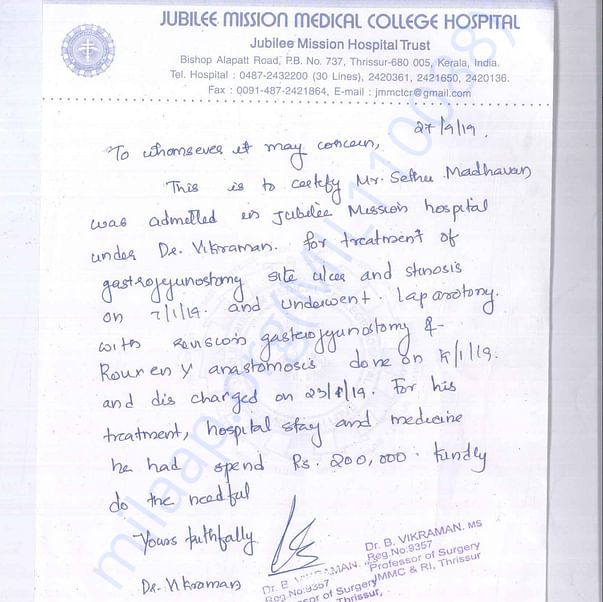 JUBILEE MISSION MEDICAL COLLEGE HOSPITAL
Jubilee Mission Hospital Trust
Bishop Alapatt Road, P.B. No. 737, Thrissur-680 005, Kerala, India.
Tel. Hospital : 0487-2432200 (30 Lines), 2420361, 2421650, 2420136.
Fax : 0091-487-2421864, E-mail : jmmctcr@gmail.com
27/9/19.
To whomsever it may concern,
This is to certify Mr. Sethu Madhavan
was admitted in Jubilee Mission hospital
under Dr. Vikraman. for treatment of
gastrojejunostomy site ulcer and stinosis
on 7/1/19. and underwent laparotomy.
with revision gastrojejunostomy &
Rouxen Y anastomosis done on /1/19.
and discharged on 23/1/19. For his
treatment, hospital stay and medicine
he had spend Rs. 200,000. kindly
do the needful
Yours faithfully
Dr. Vikraman
Dr. B. VIKRAMAN. MS
Reg.No:9357
Professor of Surgery
JMMC & RI, Thrissur
milaap.org